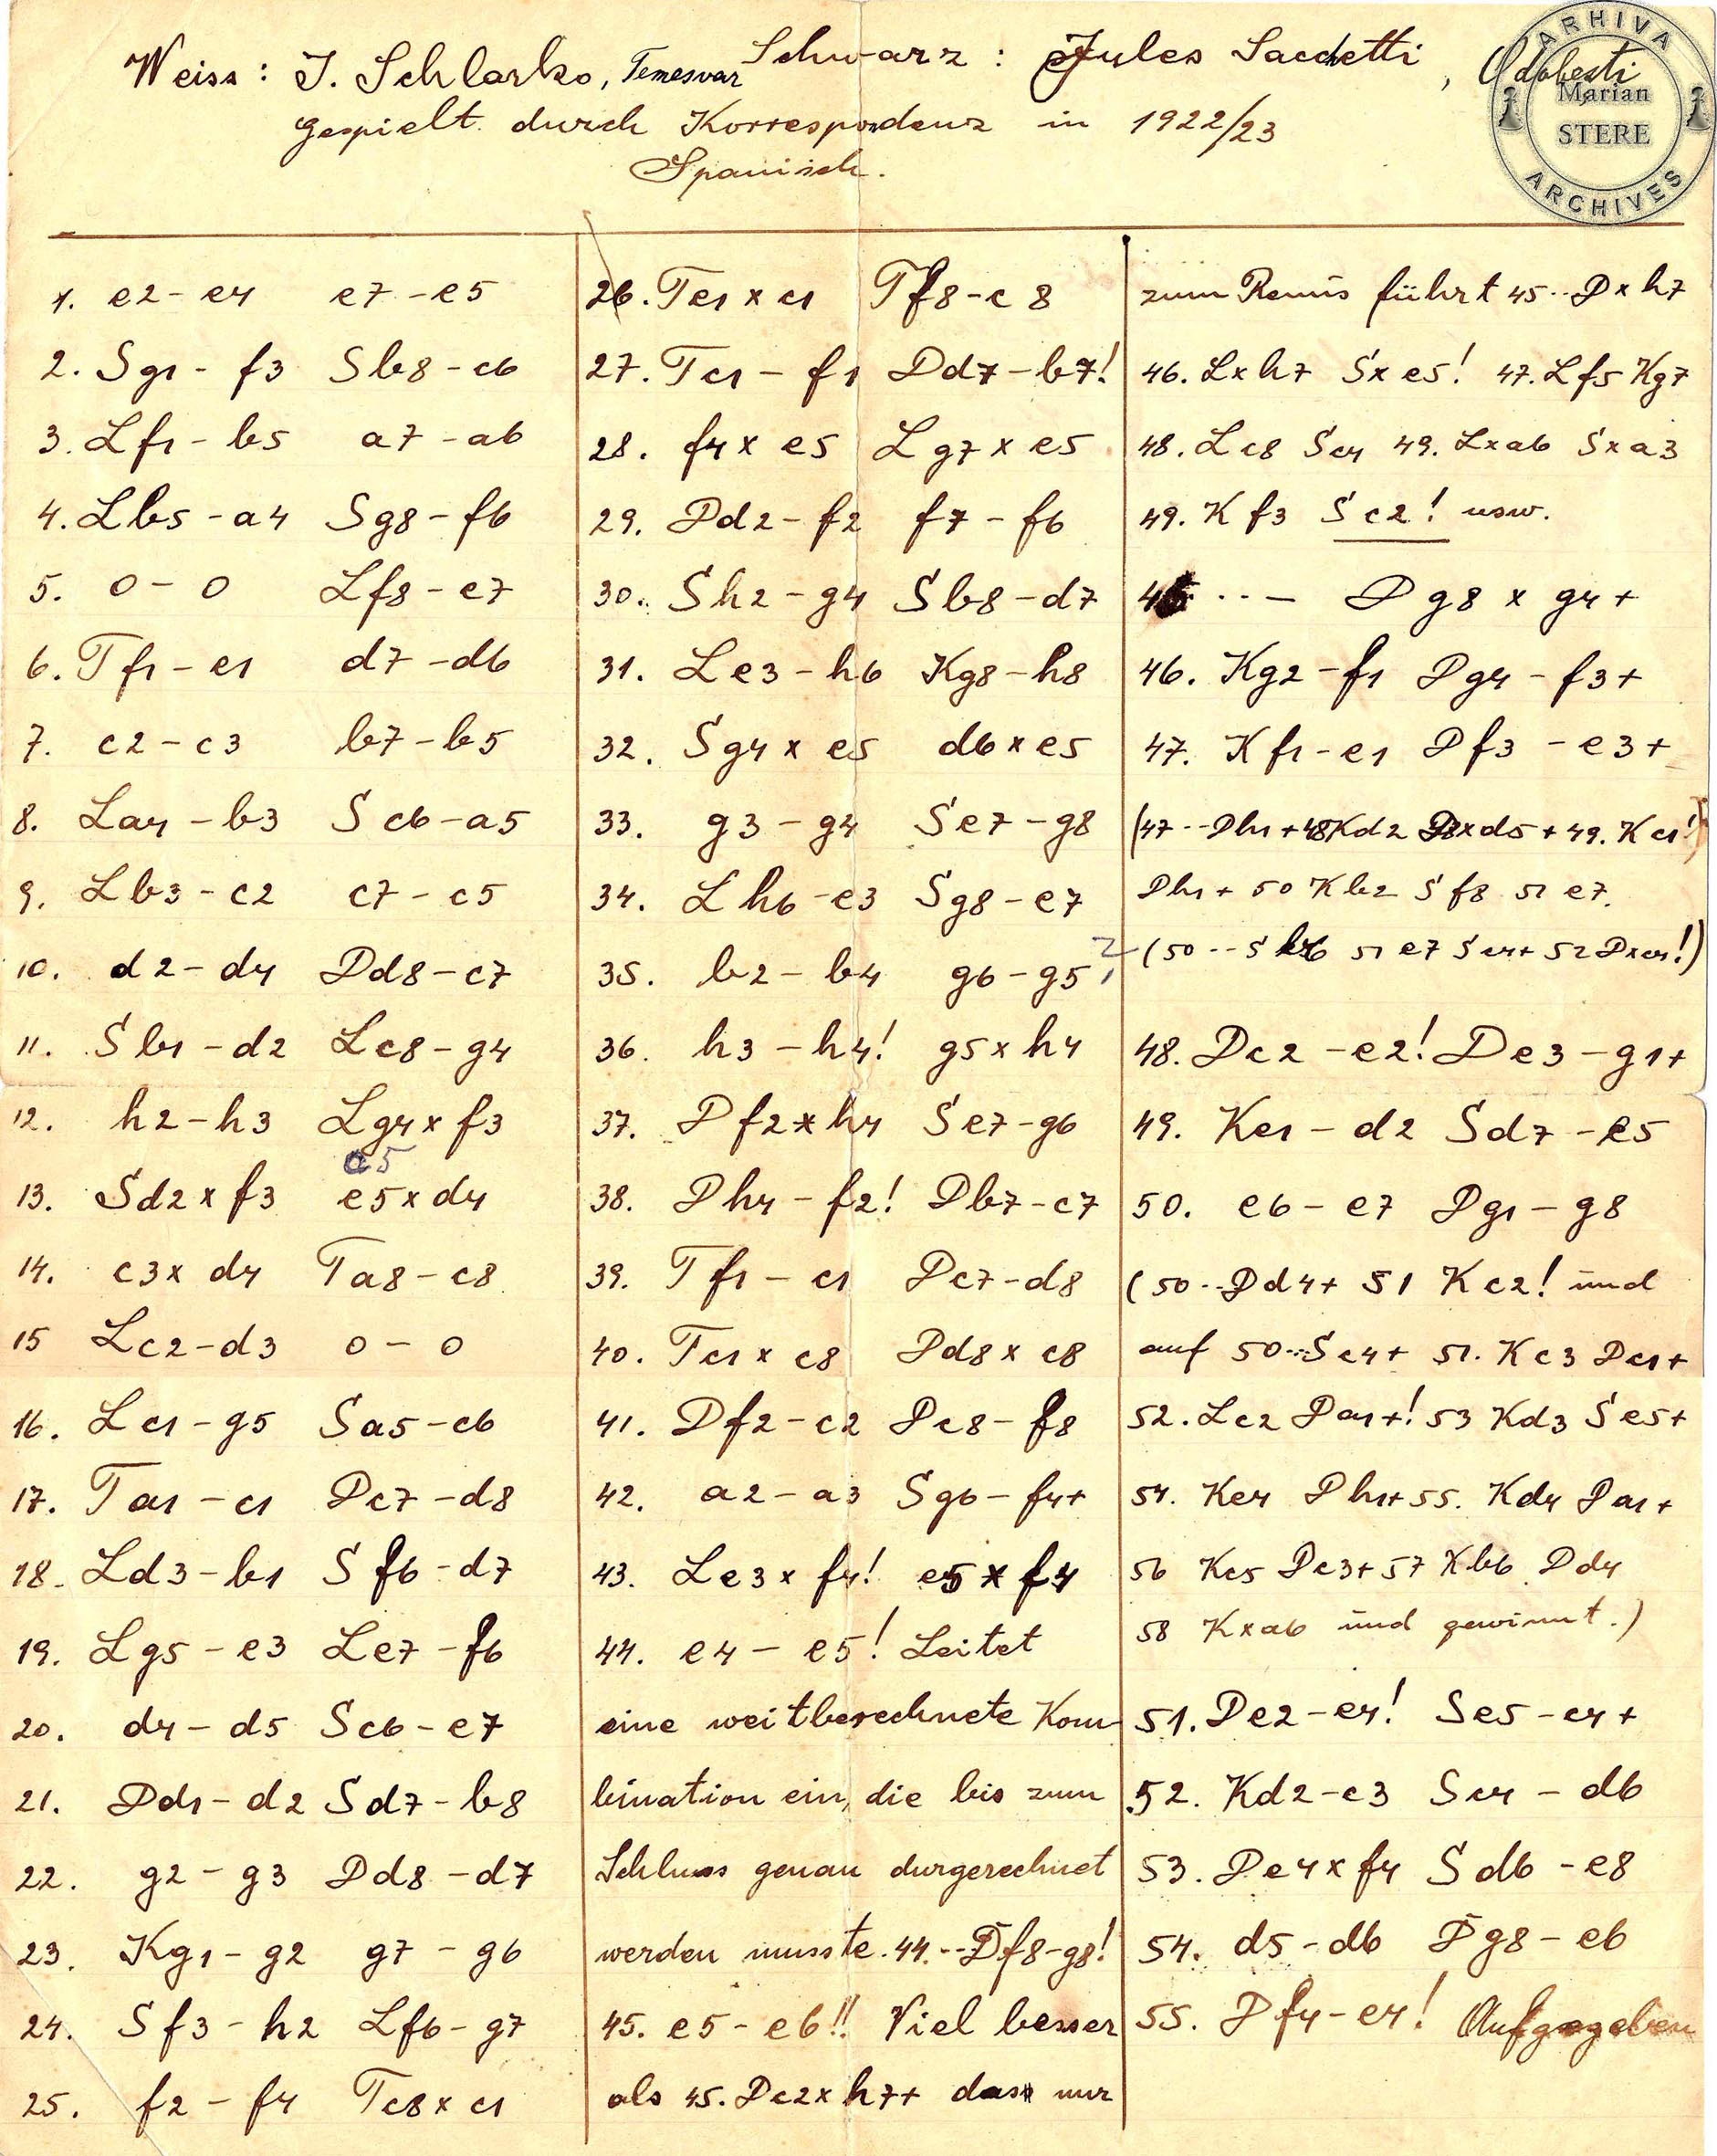 Weiss : J. Schlarko, Temesvar Schwarz : Jules Sacchetti, Odobesti
gespielt durch Korrespondenz in 1922/23
Spanisch.
ARHIVA
Marian
STERE
ARCHIVES
1. e2 - e4 e7 - e5
2. Sg1 - f3 Sb8 - c6
3. Lf1 - b5 a7 - a6
4. Lb5 - a4 Sg8 - f6
5. 0 - 0 Lf8 - e7
6. Tf1 - e1 d7 - d6
7. c2 - c3 b7 - b5
8. La4 - b3 Sc6 - a5
9. Lb3 - c2 c7 - c5
10. d2 - d4 Dd8 - c7
11. Sb1 - d2 Lc8 - g4
12. h2 - h3 Lg4 x f3
c5
13. Sd2 x f3 e5 x d4
14. c3 x d4 Ta8 - c8
15 Lc2 - d3 0 - 0
16. Lc1 - g5 Sa5 - c6
17. Ta1 - c1 Dc7 - d8
18. Ld3 - b1 Sf6 - d7
19. Lg5 - e3 Le7 - f6
20. d4 - d5 Sc6 - e7
21. Dd1 - d2 Sd7 - b8
22. g2 - g3 Dd8 - d7
23. Kg1 - g2 g7 - g6
24. Sf3 - h2 Lf6 - g7
25. f2 - f4 Tc8 x c1
26. Te1 x c1 Tf8 - c8
27. Tc1 - f1 Dd7 - b7!
28. f4 x e5 Lg7 x e5
29. Dd2 - f2 f7 - f6
30. Sh2 - g4 Sb8 - d7
31. Le3 - h6 Kg8 - h8
32. Sg4 x e5 d6 x e5
33. g3 - g4 Se7 - g8
34. Lh6 - e3 Sg8 - e7
35. b2 - b4 g6 - g5 ?
36. h3 - h4! g5 x h4
37. Df2 x h4 Se7 - g6
38. Dh4 - f2! Db7 - c7
39. Tf1 - c1 Dc7 - d8
40. Tc1 x c8 Dd8 x c8
41. Df2 - c2 Dc8 - f8
42. a2 - a3 Sg6 - f4+
43. Le3 x f4! e5 x f4
44. e4 - e5! Leitet
eine weitberechnete Kom-
bination ein, die bis zum
Schluss genau durgerechnet
werden musste. 44. -- Df8 - g8!
45. e5 - e6!! Viel besser
als 45. Dc2 x h7+ dass nur
zum Remis führt 45 -- D x h7
46. L x h7 S x e5! 47. Lf5 Kg7
48. Lc8 Sc4 49. Lxa6 Sxa3
49. Kf3 Sc2! usw.
45 -- - Dg8 x g4+
46. Kg2 - f1 Dg4 - f3+
47. Kf1 - e1 Df3 - e3+
(47 -- Dh1+ 48 Kd2 Dxd5+ 49. Kc1!)
Dh1+ 50 Kb2 Sf8 51 e7.
(50 -- Sb6 51 e7 Sc4+ 52 Dxc4!)
48. Dc2 - e2! De3 - g1+
49. Ke1 - d2 Sd7 - e5
50. e6 - e7 Dg1 - g8
(50 -- Dd4+ 51 Kc2! und
auf 50 -- Sc4+ 51. Kc3 Dc1+
52. Lc2 Da1+! 53 Kd3 Se5+
54. Ke4 Dh1+ 55. Kd4 Da1+
56 Kc5 Dc3+ 57 Kb6 Dd4
58 Kxa6 und gewinnt.)
51. De2 - e4! Se5 - c4+
52. Kd2 - c3 Sc4 - d6
53. De4 x f4 Sd6 - e8
54. d5 - d6 Dg8 - e6
55. Df4 - e4! Aufgegeben